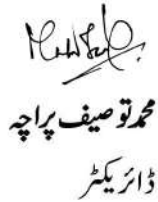 محمد توصیف پراچہ
ڈائریکٹر